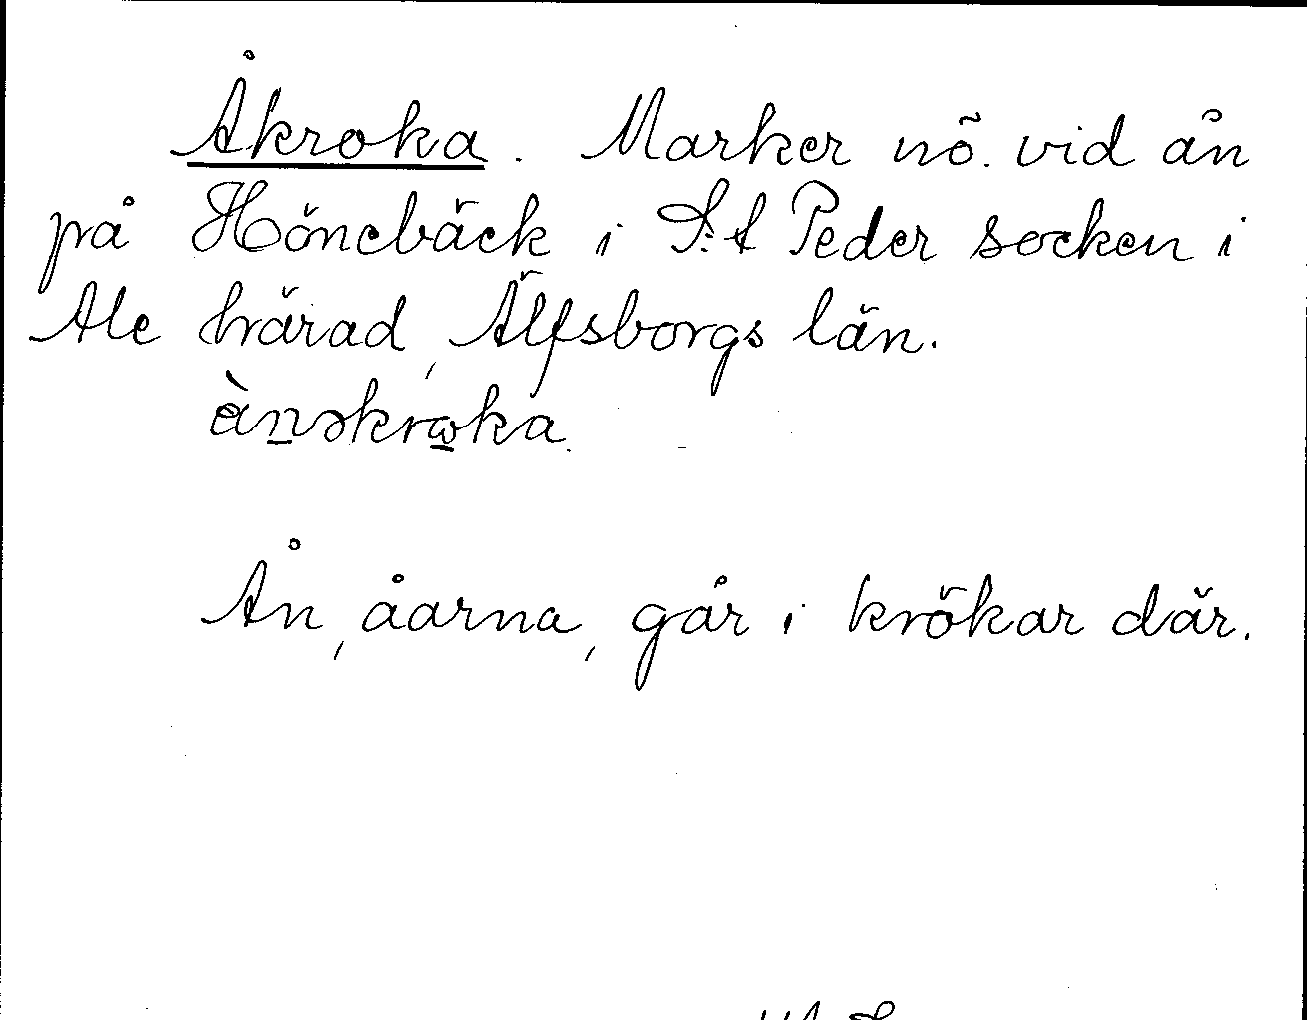 Åkroka. Marker nö. vid ån
på Hönebäck i S:t Peder socken i
Ale härad, Älfsborgs län.
ånskroka.
Ån, åarna, går i krökar där.